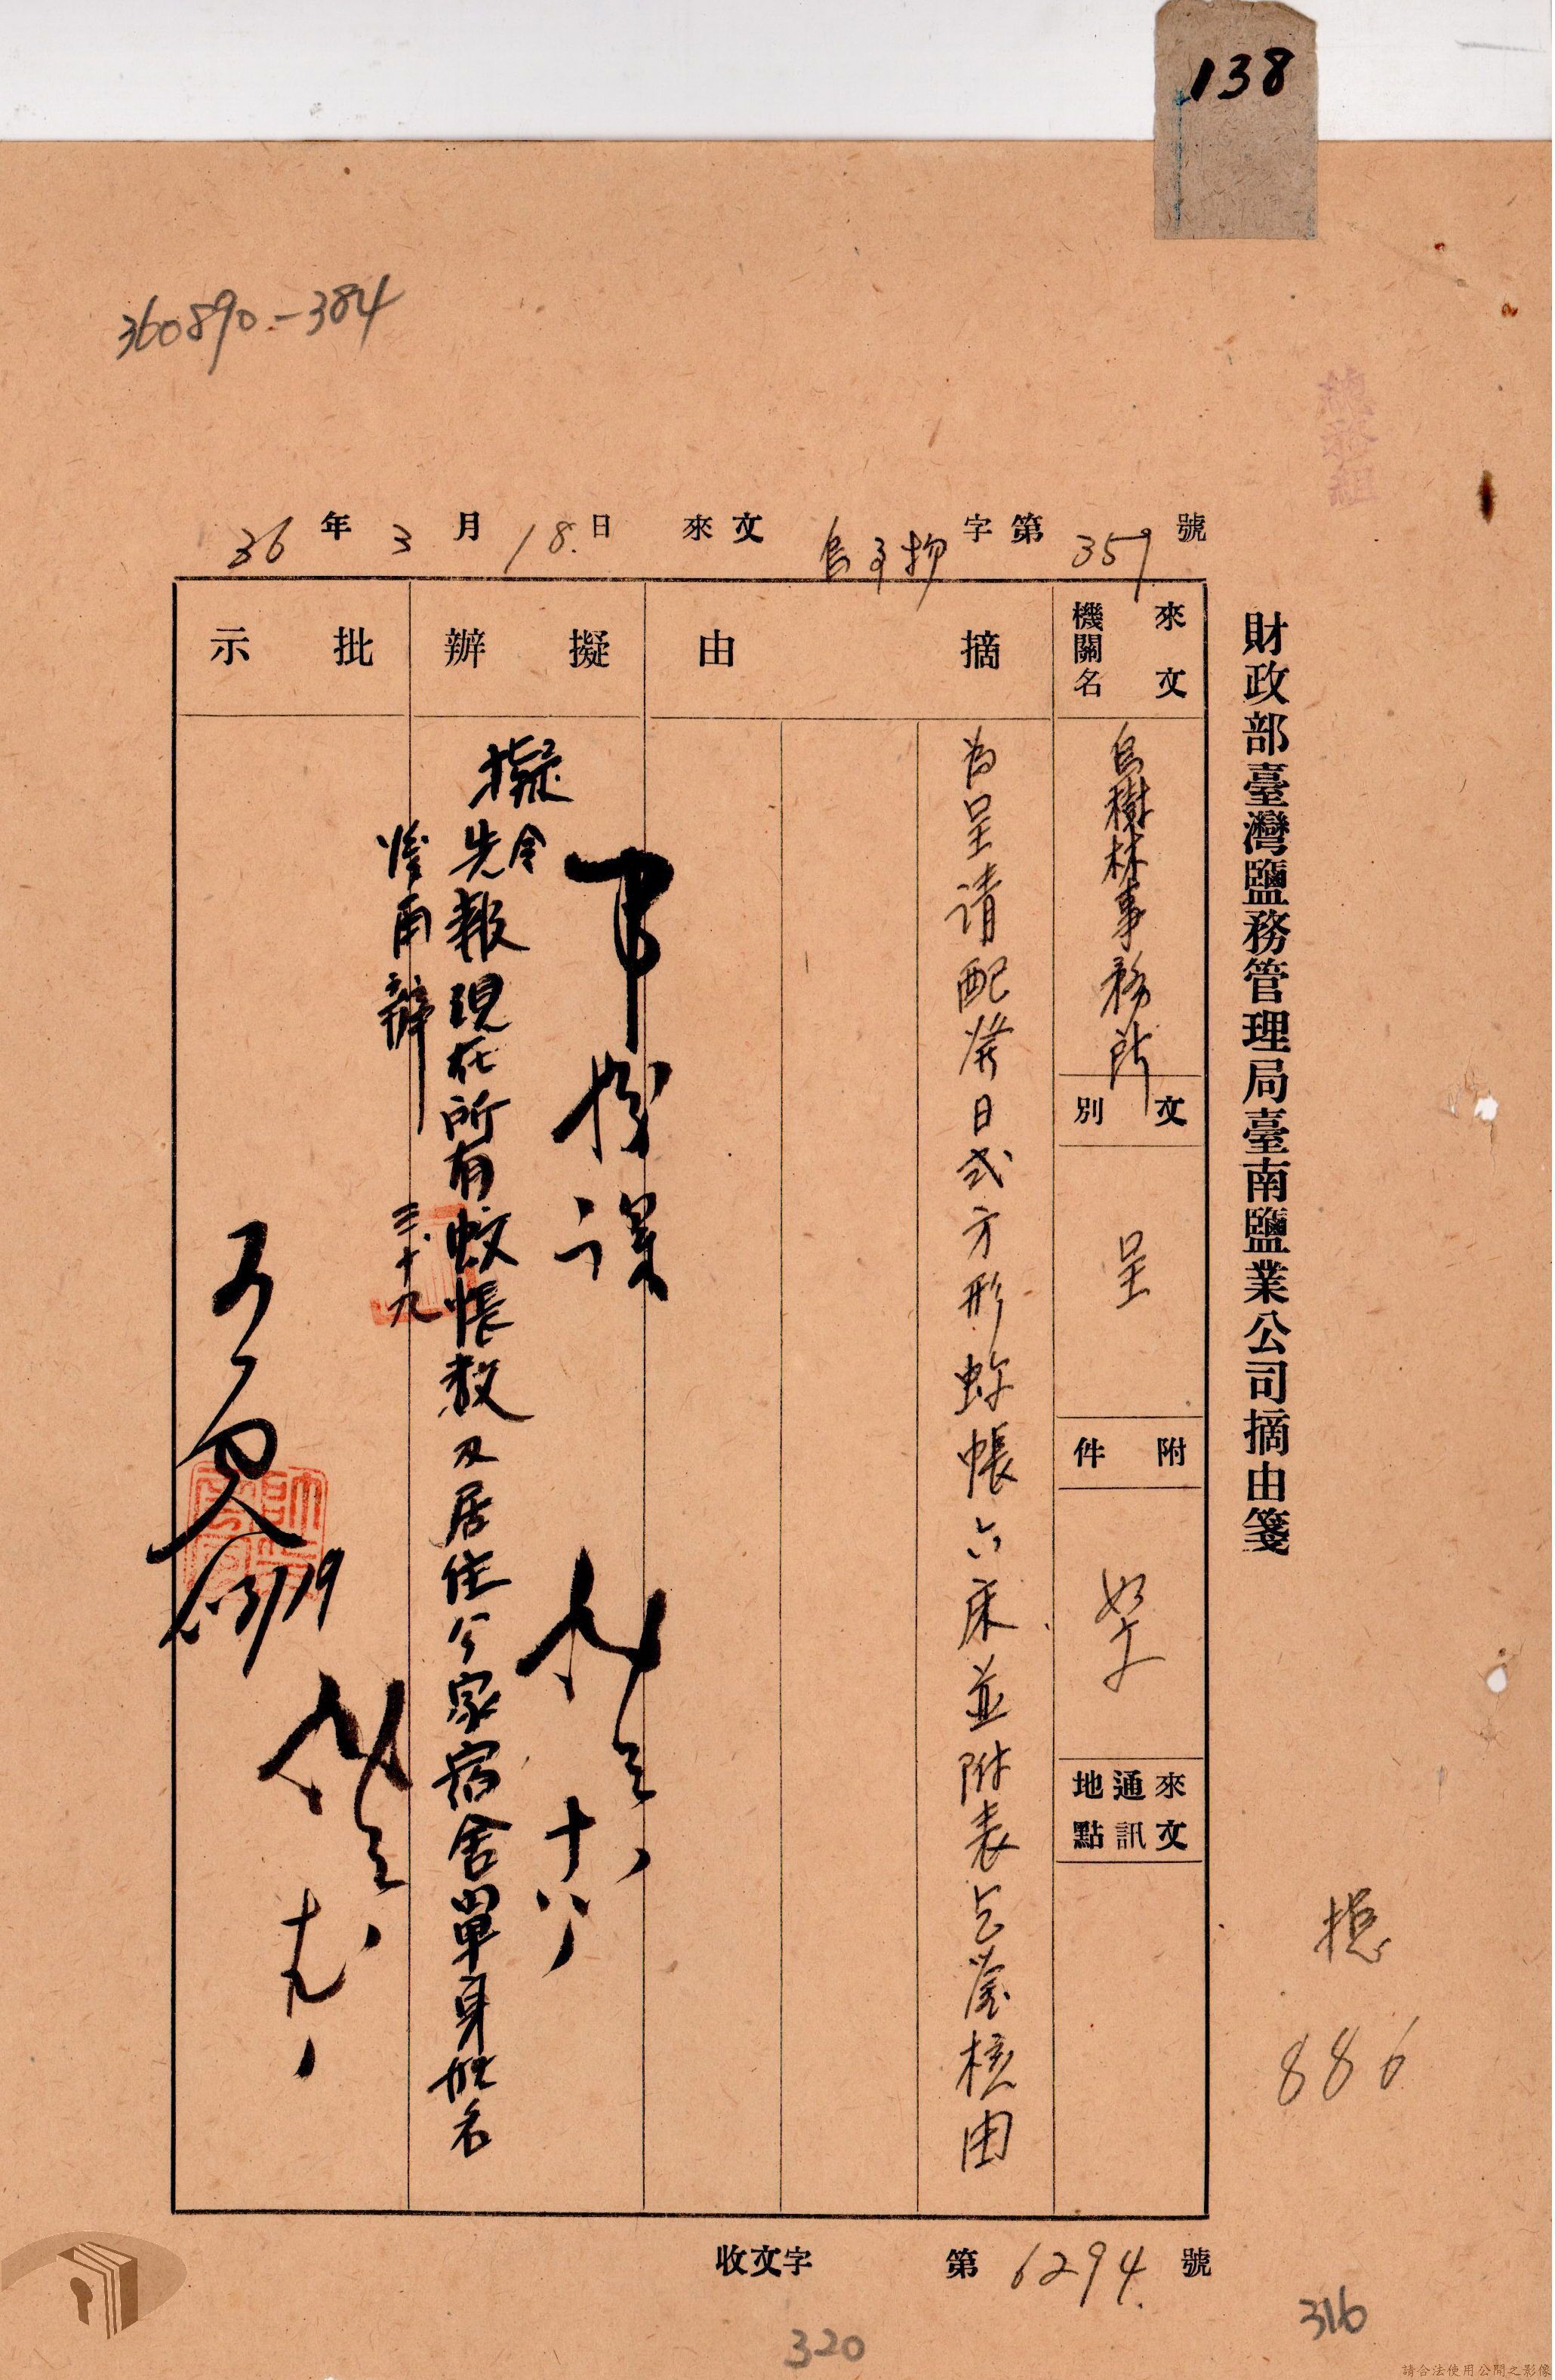 138
360890-384
總務組
36年3月18日來文烏事物字第357號
財政部臺灣鹽務管理局臺南鹽業公司摘由箋
來文機關名
烏樹林事務所
文別
呈
附件
如文
來文通訊地點
摘由
為呈請配發日式方形蚊帳六床並附表乞鑒核由
擬辦
十八
擬
先令報現在所有蚊帳數及居住公家宿舍單身姓名
後再辦
三.十九
批示
3/19
總
886
收文字第6294號
316
320
請合法使用公開之影像